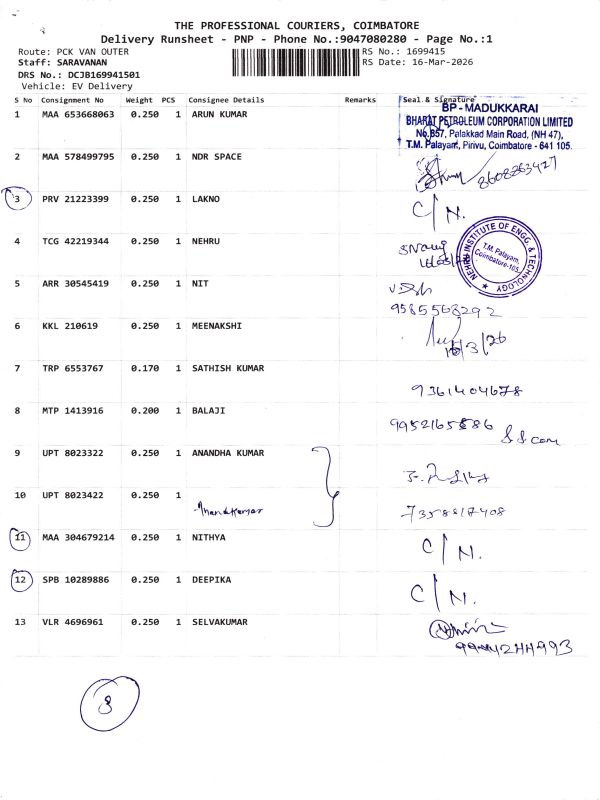 THE PROFESSIONAL COURIERS, COIMBATORE
Delivery Runsheet - PNP - Phone No.:9047080280 - Page No.:1
Route: PCK VAN OUTER
RS No.: 1699415
Staff: SARAVANAN
RS Date: 16-Mar-2026
DRS No.: DCJB169941501
Vehicle: EV Delivery
S No Consignment No Weight PCS Consignee Details Remarks Seal & Signature
1 MAA 653668063 0.250 1 ARUN KUMAR
BP - MADUKKARAI
BHARAT PETROLEUM CORPORATION LIMITED
No.857, Palakkad Main Road, (NH 47),
T.M. Palayam, Pirivu, Coimbatore - 641 105.
2 MAA 578499795 0.250 1 NDR SPACE
8608263427
3 PRV 21223399 0.250 1 LAKNO C/N.
4 TCG 42219344 0.250 1 NEHRU
NEHRU INSTITUTE OF ENGG. & TECHNOLOGY
T.M. Palayam,
Coimbatore-105.
5 ARR 30545419 0.250 1 NIT
9585568292
6 KKL 210619 0.250 1 MEENAKSHI
16/3/26
7 TRP 6553767 0.170 1 SATHISH KUMAR
9361404678
8 MTP 1413916 0.200 1 BALAJI
9952165886
9 UPT 8023322 0.250 1 ANANDHA KUMAR
10 UPT 8023422 0.250 1
Anandkumar
7358817408
11 MAA 304679214 0.250 1 NITHYA C/N.
12 SPB 10289886 0.250 1 DEEPIKA C/N.
13 VLR 4696961 0.250 1 SELVAKUMAR
3